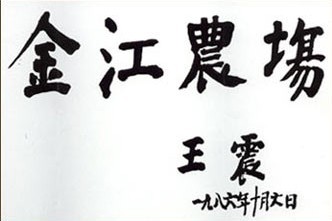 金江農場
王震
一九八六年十月六日